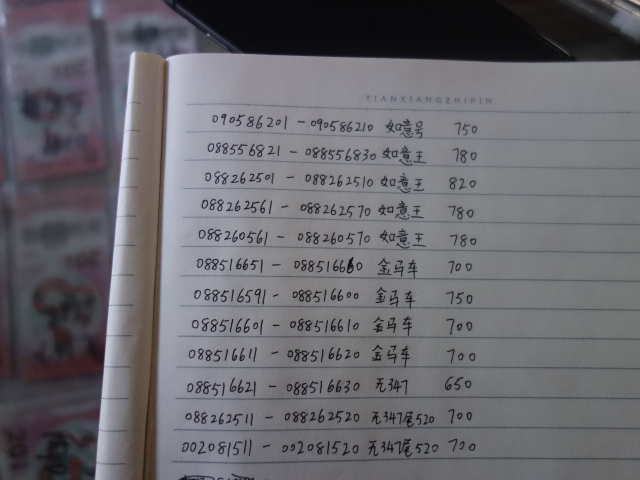 TIANXIANGZHIPIN
090586201 - 090586210 如意号 750
088556821 - 088556830 如意王 780
088262501 - 088262510 如意王 820
088262561 - 088262570 如意王 780
088260561 - 088260570 如意王 780
088516651 - 088516660 金马车 700
088516591 - 088516600 金马车 750
088516601 - 088516610 金马车 700
088516611 - 088516620 金马车 700
088516621 - 088516630 无347 650
088262511 - 088262520 无347尾520 700
002081511 - 002081520 无347尾520 700